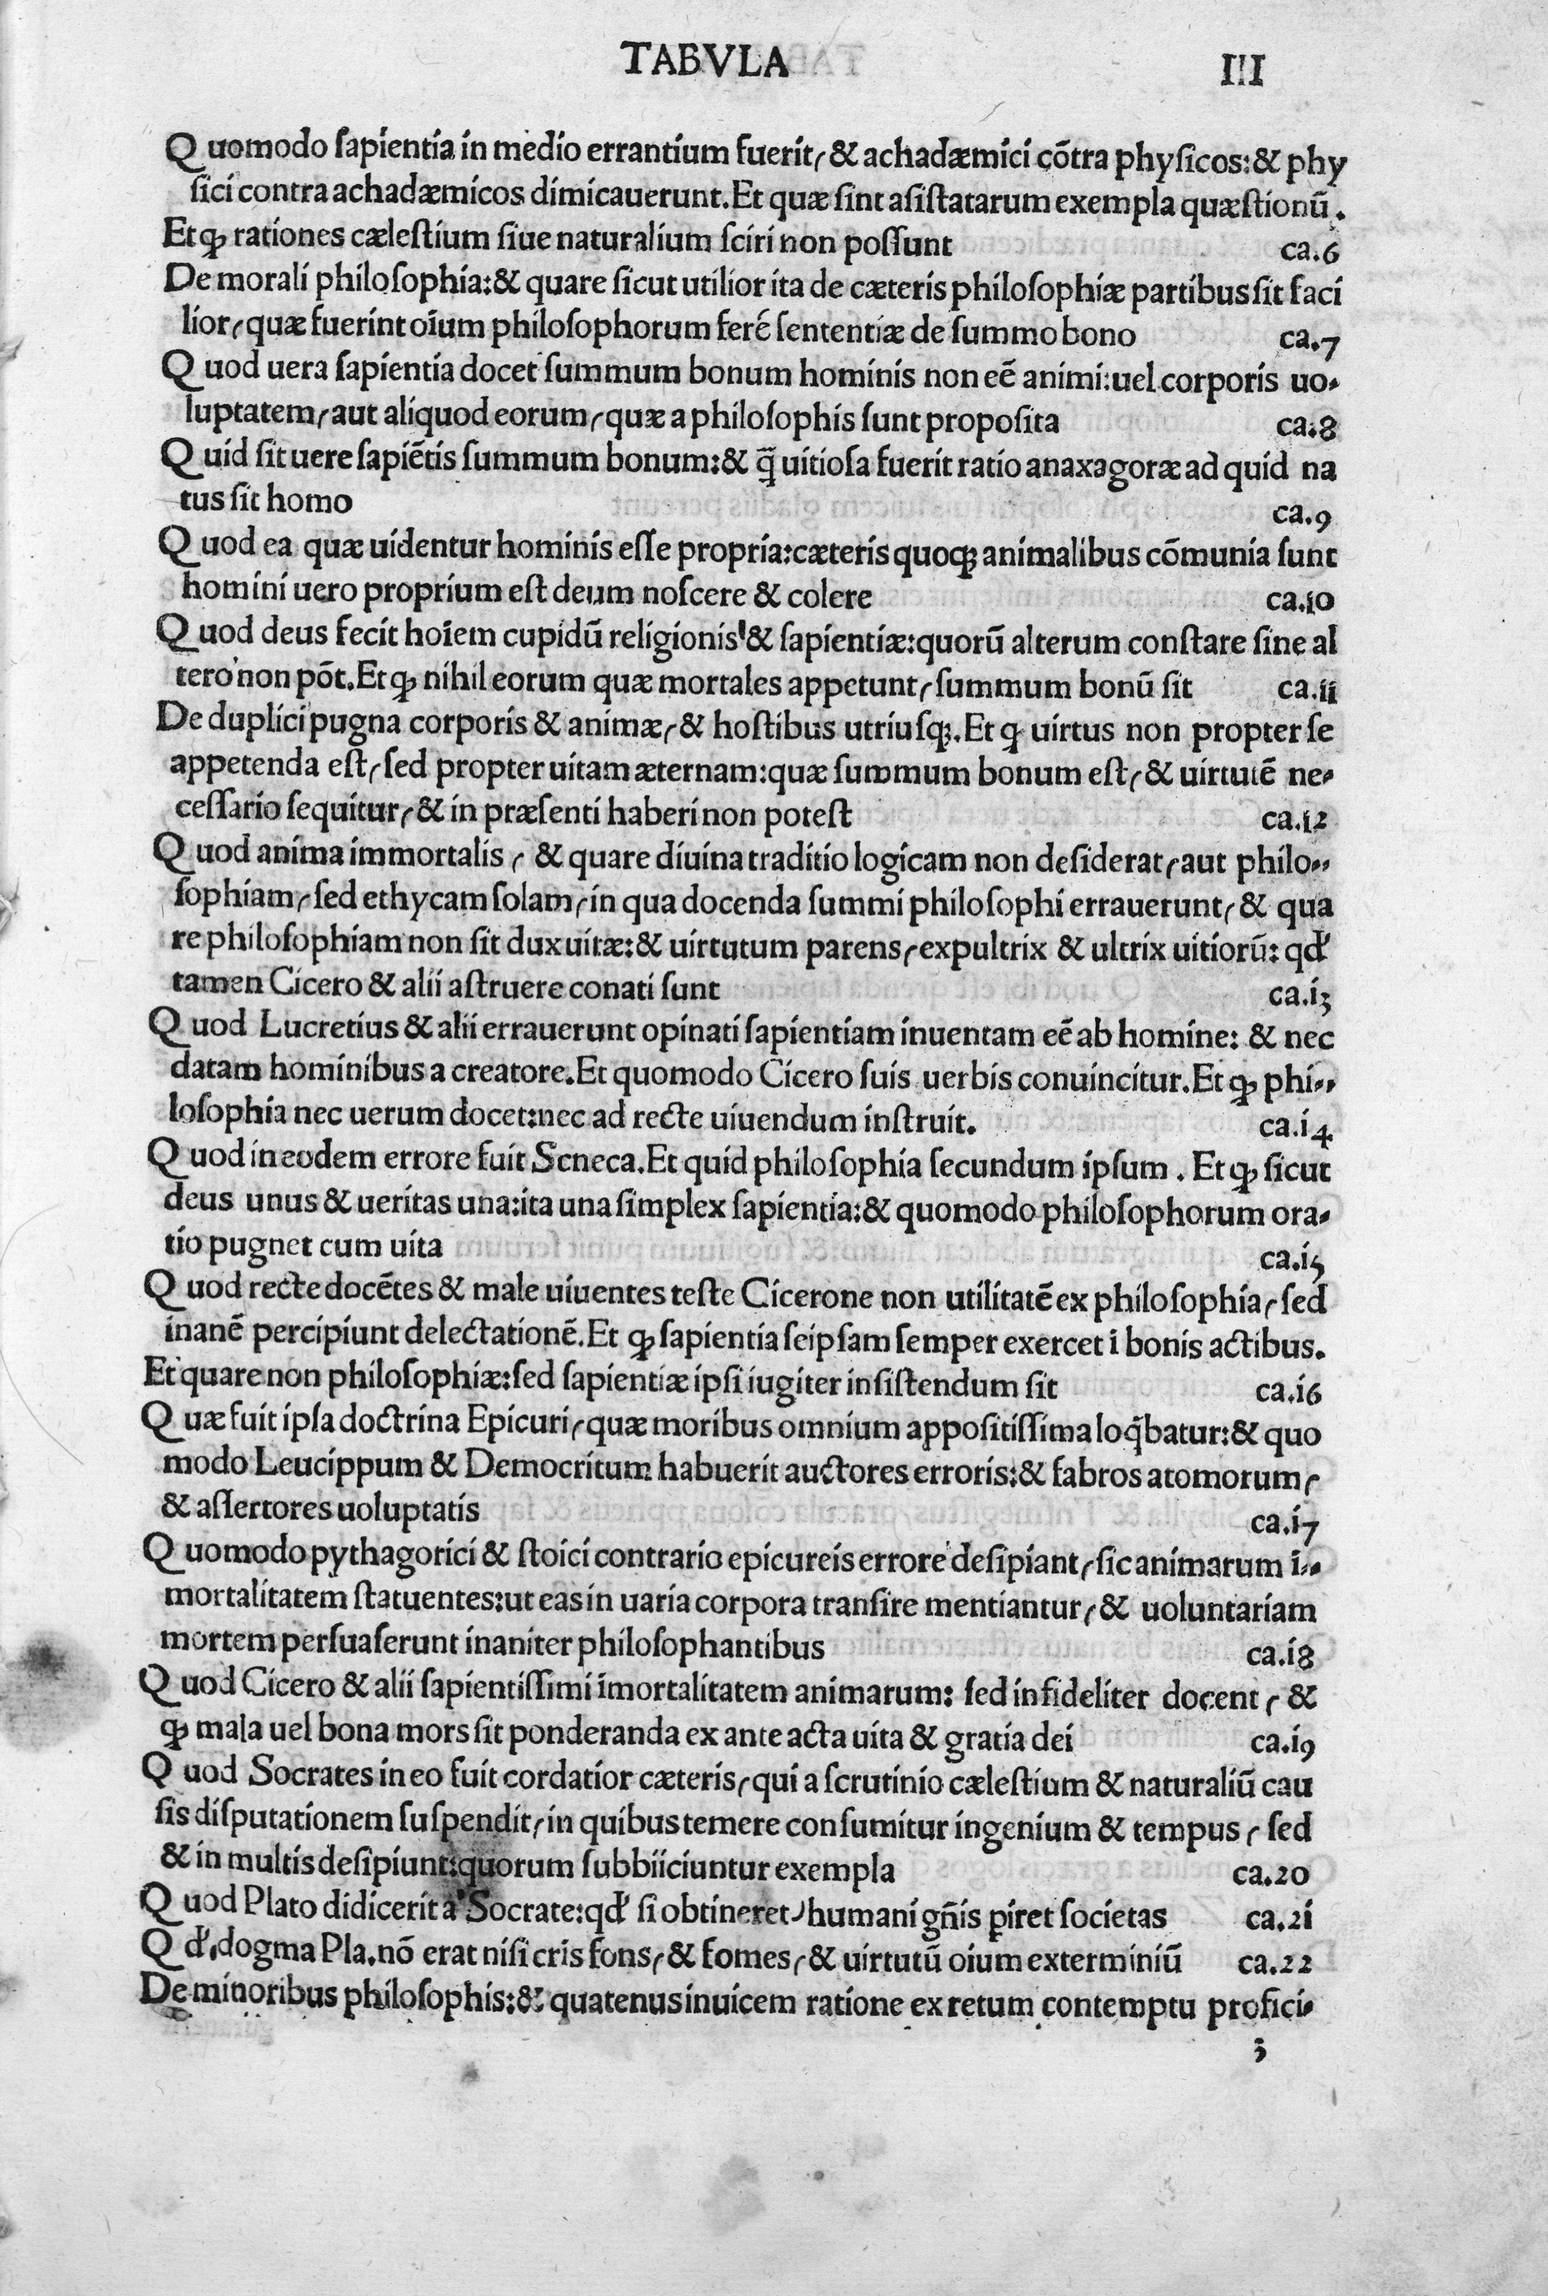 TABVLA III
Quomodo ſapientia in medio errantium fuerit, & achadæmici cōtra phyſicos: & phy
ſici contra achadæmicos dimicauerunt. Et quæ ſint aſiſtatarum exempla quæſtionū.
Et ꝙ rationes cæleſtium ſiue naturalium ſciri non poſſunt ca.6
De morali philoſophia: & quare ſicut utilior ita de cæteris philoſophiæ partibus ſit faci
lior, quæ fuerint oīum philoſophorum feré ſententiæ de ſummo bono ca.7
Quod uera ſapientia docet ſummum bonum hominis non eē animi: uel corporis uo-
luptatem, aut aliquod eorum, quæ a philoſophis ſunt propoſita ca.8
Quid ſit uere ſapiētis ſummum bonum: & q̄ uitioſa fuerit ratio anaxagoræ ad quid na
tus ſit homo ca.9
Quod ea quæ uidentur hominis eſſe propria: cæteris quoqꝫ animalibus cōmunia ſunt
homini uero proprium eſt deum noſcere & colere ca.10
Quod deus fecit hoīem cupidū religionis & ſapientiæ: quorū alterum conſtare ſine al
tero non pōt. Et ꝙ nihil eorum quæ mortales appetunt, ſummum bonū ſit ca.11
De duplici pugna corporis & animæ, & hoſtibus utriuſqꝫ. Et ꝙ uirtus non propter ſe
appetenda eſt, ſed propter uitam æternam: quæ ſummum bonum eſt, & uirtutē ne-
ceſſario ſequitur, & in præſenti haberi non poteſt ca.12
Quod anima immortalis, & quare diuina traditio logicam non deſiderat, aut philo-
ſophiam, ſed ethycam ſolam, in qua docenda ſummi philoſophi errauerunt, & qua
re philoſophiam non ſit dux uitæ: & uirtutum parens, expultrix & ultrix uitiorū: qď
tamen Cicero & alii aſtruere conati ſunt ca.13
Quod Lucretius & alii errauerunt opinati ſapientiam inuentam eē ab homine: & nec
datam hominibus a creatore. Et quomodo Cicero ſuis uerbis conuincitur. Et ꝙ phi-
loſophia nec uerum docet: nec ad recte uiuendum inſtruit. ca.14
Quod in eodem errore fuit Seneca. Et quid philoſophia ſecundum ipſum. Et ꝙ ſicut
deus unus & ueritas una: ita una ſimplex ſapientia: & quomodo philoſophorum ora-
tio pugnet cum uita ca.15
Quod recte docētes & male uiuentes teſte Cicerone non utilitatē ex philoſophia, ſed
inanē percipiunt delectationē. Et ꝙ ſapientia ſeipſam ſemper exercet ī bonis actibus.
Et quare non philoſophiæ: ſed ſapientiæ ipſi iugiter inſiſtendum ſit ca.16
Quæ fuit ipſa doctrina Epicuri, quæ moribus omnium appoſitiſſima loq̄batur: & quo
modo Leucippum & Democritum habuerit auctores erroris: & fabros atomorum,
& aſſertores uoluptatis ca.17
Quomodo pythagorici & ſtoici contrario epicureis errore deſipiant, ſic animarum ī-
mortalitatem ſtatuentes: ut eas in uaria corpora tranſire mentiantur, & uoluntariam
mortem perſuaſerunt inaniter philoſophantibus ca.18
Quod Cicero & alii ſapientiſſimi īmortalitatem animarum: ſed infideliter docent, &
ꝙ mala uel bona mors ſit ponderanda ex ante acta uita & gratia dei ca.19
Quod Socrates in eo fuit cordatior cæteris, qui a ſcrutinio cæleſtium & naturaliū cau
ſis diſputationem ſuſpendit, in quibus temere conſumitur ingenium & tempus, ſed
& in multis deſipiunt: quorum ſubbiiciuntur exempla ca.20
Quod Plato didicerit a Socrate: qď ſi obtineret, humani gn̄is ꝑiret ſocietas ca.21
Qď, dogma Pla. nō erat niſi cris fons, & fomes, & uirtutū oium exterminiū ca.22
De minoribus philoſophis: & quatenus inuicem ratione ex retum contemptu profici-
3